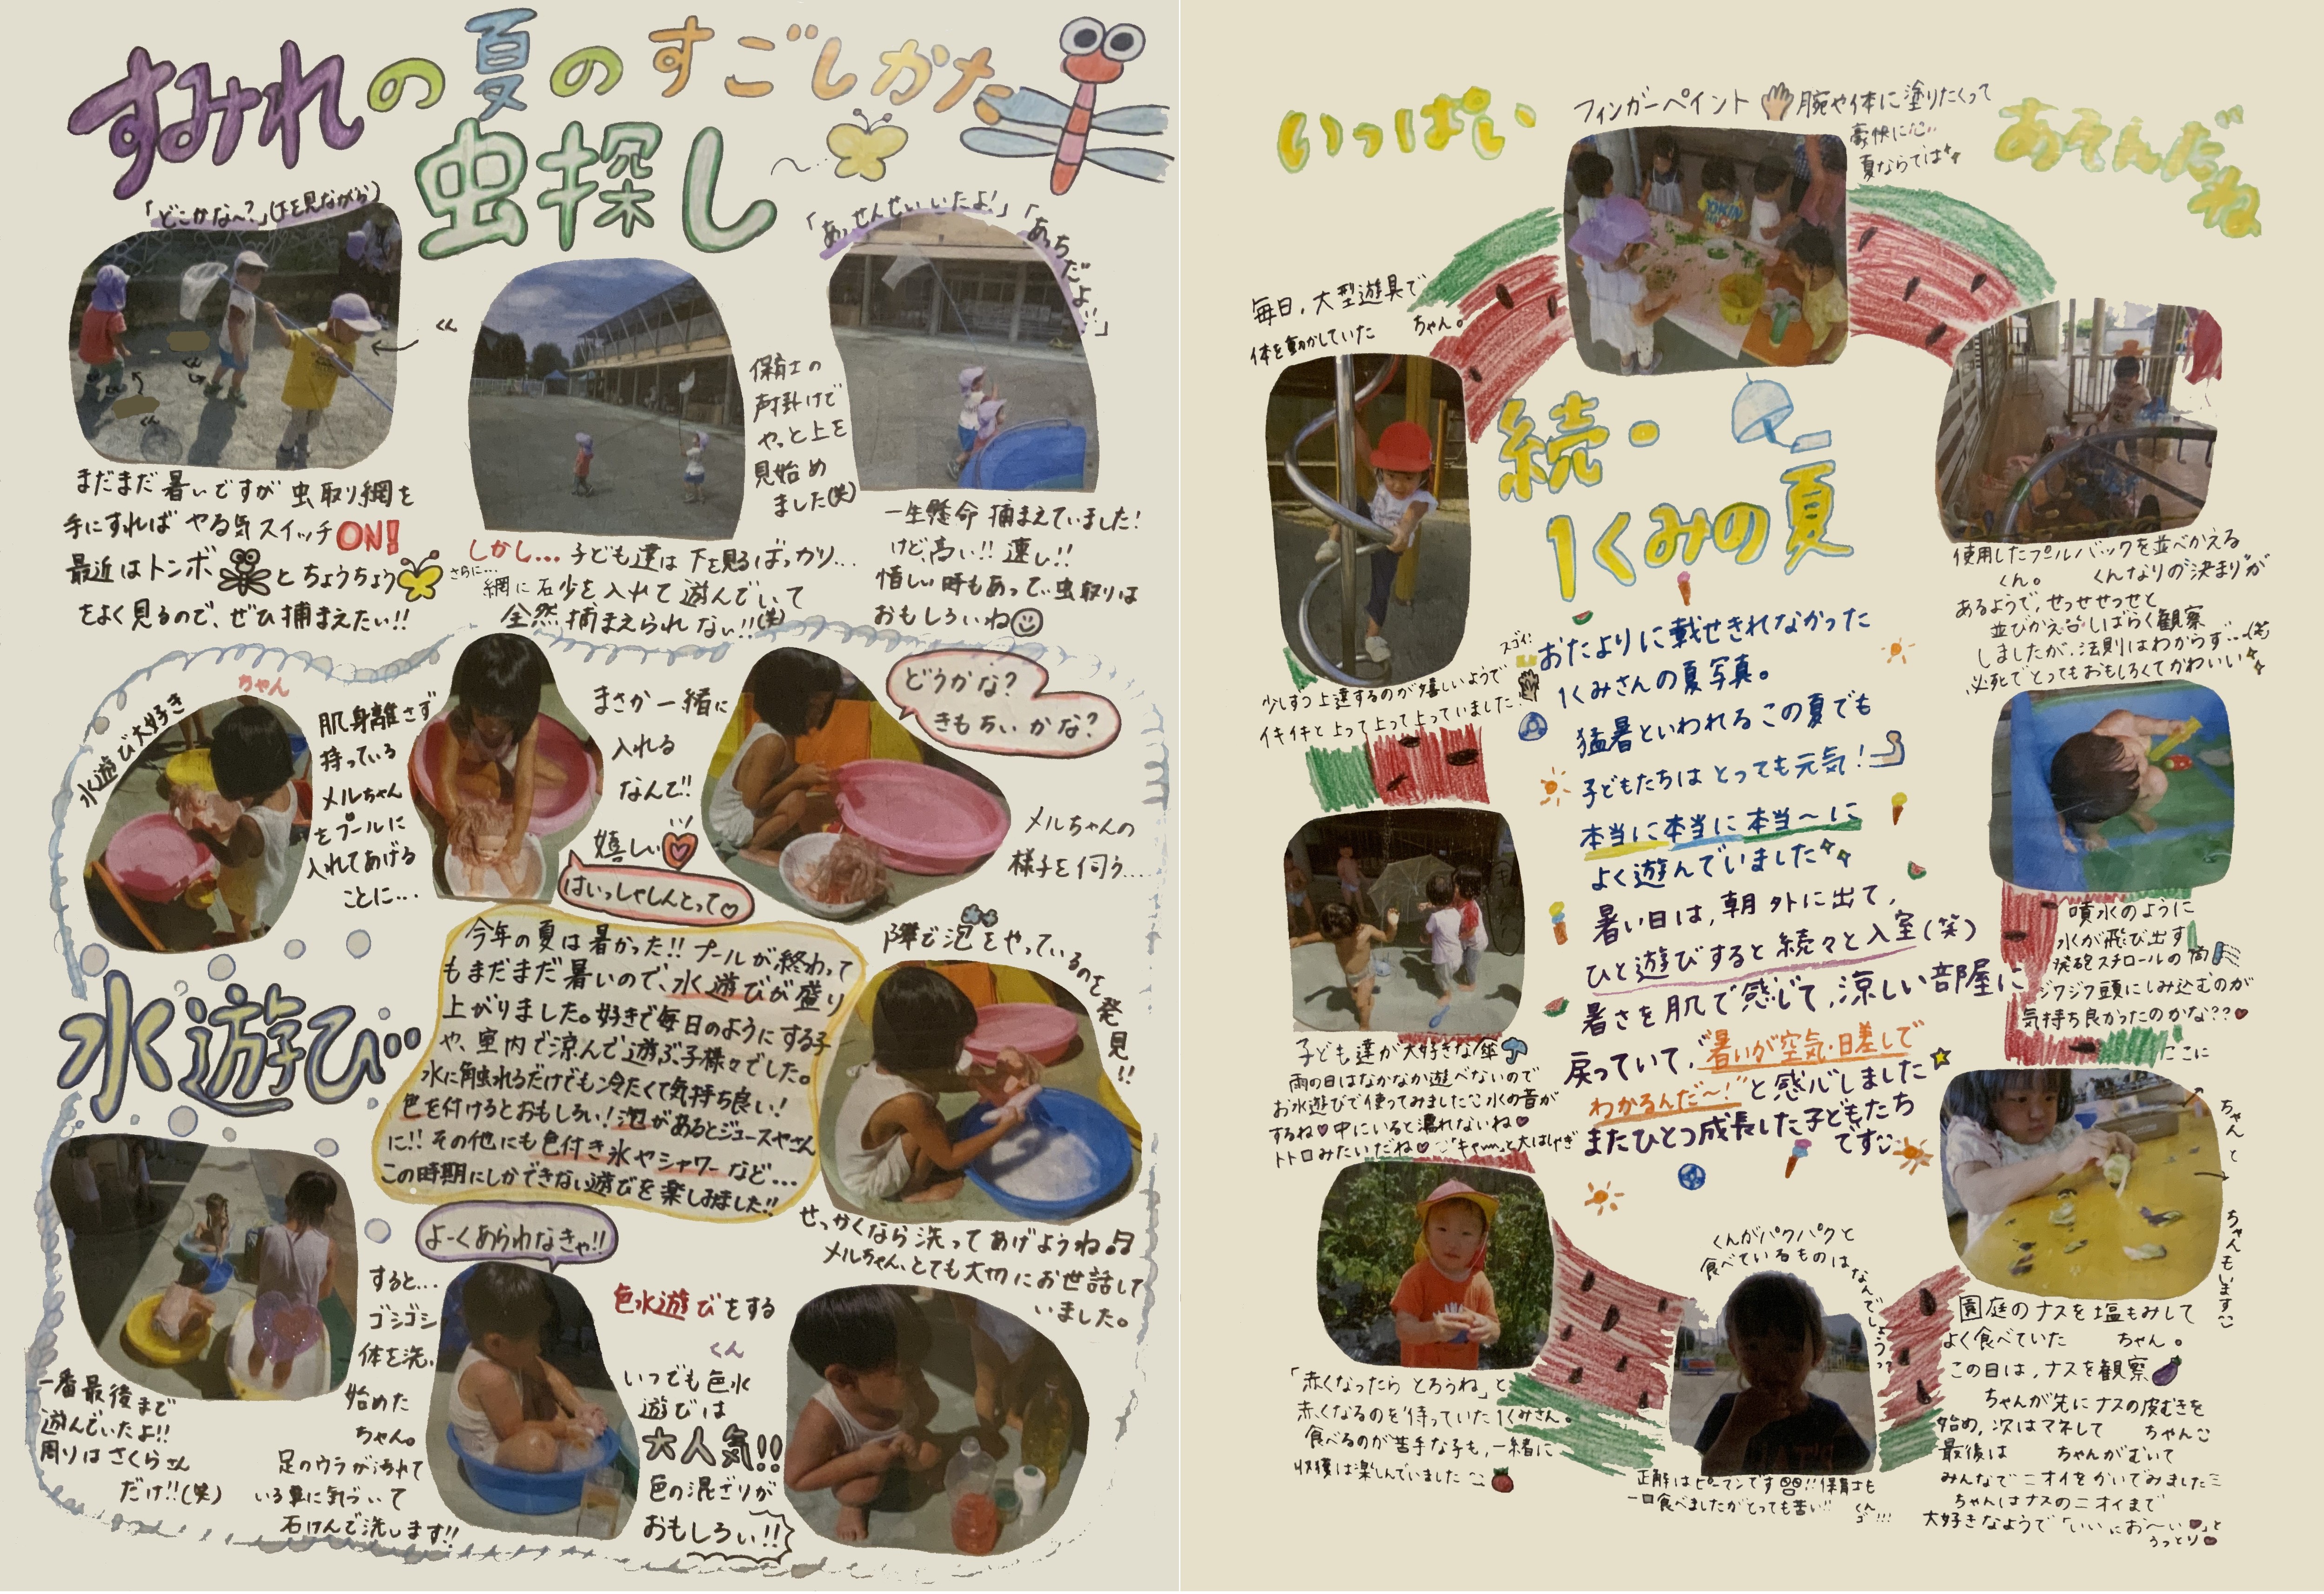 すみれの夏のすごしかた
虫探し
「どこかな〜?」(下を見ながら)
まだまだ暑いですが虫取り網を
手にすれば やる気スイッチON!
最近はトンボとちょうちょう
をよく見るので、ぜひ捕まえたい!!
しかし… 子ども達は下を見るばっかり…
さらに…
網に石少を入れて遊んでいて
全然捕まえられない!!(笑)
保育士の
声掛けで
やっと上を
見始め
ました(笑)
「あっせんせいいたよ!」「あっちだよ…」
一生懸命捕まえていました!
けど、高い!! 速い!!
惜しい時もあって、虫取りは
おもしろいね
水遊び大好き
ちゃん
肌身離さず
持っている
メルちゃん
をプールに
入れてあげる
ことに…
まさか一緒に
入れる
なんて!!
嬉しい
はいっしゃしんとって♡
どうかな?
きもちいかな?
メルちゃんの
様子を伺う…
水遊び…
今年の夏は暑かった!! プールが終わって
もまだまだ暑いので、水遊びが盛り
上がりました。好きで毎日のようにする子
や、室内で涼んで遊ぶ子様々でした。
水に触れるだけでも冷たくて気持ち良い!
色を付けるとおもしろい!泡があるとジュースやさん
に!! その他にも色付き氷やシャワーなど…
この時期にしかできない遊びを楽しみました!!
隣で泡をやっているのを発見!!
せっかくなら洗ってあげようね♫
メルちゃん、とても大切にお世話して
いました。
一番最後まで
遊んでいたよ!!
周りはさくらさん
だけ!!(笑)
よーくあらわなきゃ!!
すると…
ゴシゴシ
体を洗い
始めた
ちゃん。
足のウラが汚れて
いる事に気づいて
石けんで洗います!!
色水遊びをする
くん
いつでも色水
遊びは
大人気!!
色の混ざりが
おもしろい!!
いっぱい
あそんだね
フィンガーペイント 腕や体に塗りたくって
豪快に
夏ならでは
毎日、大型遊具で
体を動かしていた ちゃん。
スゴイ!
少しずつ上達するのが嬉しいようで
イキイキと上って上って上っていました!
続・
1くみの夏
おたよりに載せきれなかった
1くみさんの夏写真。
猛暑といわれるこの夏でも
子どもたちはとっても元気!
本当に本当に本当〜に
よく遊んでいました
暑い日は、朝外に出て、
ひと遊びすると続々と入室(笑)
暑さを肌で感じて、涼しい部屋に
戻っていて、“暑いが空気・日差しで
わかるんだ〜!”と感心しました
またひとつ成長した子どもたち
です
使用したプールバックを並べかえる
くん。 くんなりの“決まり”が
あるようで、せっせせっせと
並びかえ しばらく観察
しましたが、法則はわからず…(笑)
必死でとってもおもしろくてかわいい
噴水のように
水が飛び出す
発砲スチロールの筒
ジワジワ頭にしみ込むのが
気持ち良かったのかな??♥
子ども達が大好きな傘
雨の日はなかなか遊べないので
お水遊びで使ってみました 水の音が
するね♥中にいると濡れないね♥
トトロみたいだね♥ “キャー”と大はしゃぎ
ここに
ちゃんと
ちゃんもいます
園庭のナスを塩もみして
よく食べていた ちゃん。
この日は、ナスを観察
ちゃんが先にナスの皮むきを
始め、次はマネして ちゃん
最後は ちゃんがむいて
みんなでニオイをかいでみました
ちゃんはナスのニオイまで
大好きなようで「いいにお〜い♥」と
うっとり♥
「赤くなったらとろうね」と
赤くなるのを待っていた1くみさん。
食べるのが苦手な子も、一緒に
収穫は楽しんでいました
くんがパクパクと
食べているものはなんでしょう??
正解はピーマンです!! 保育士も
一口食べましたがとっても苦い!!
くん